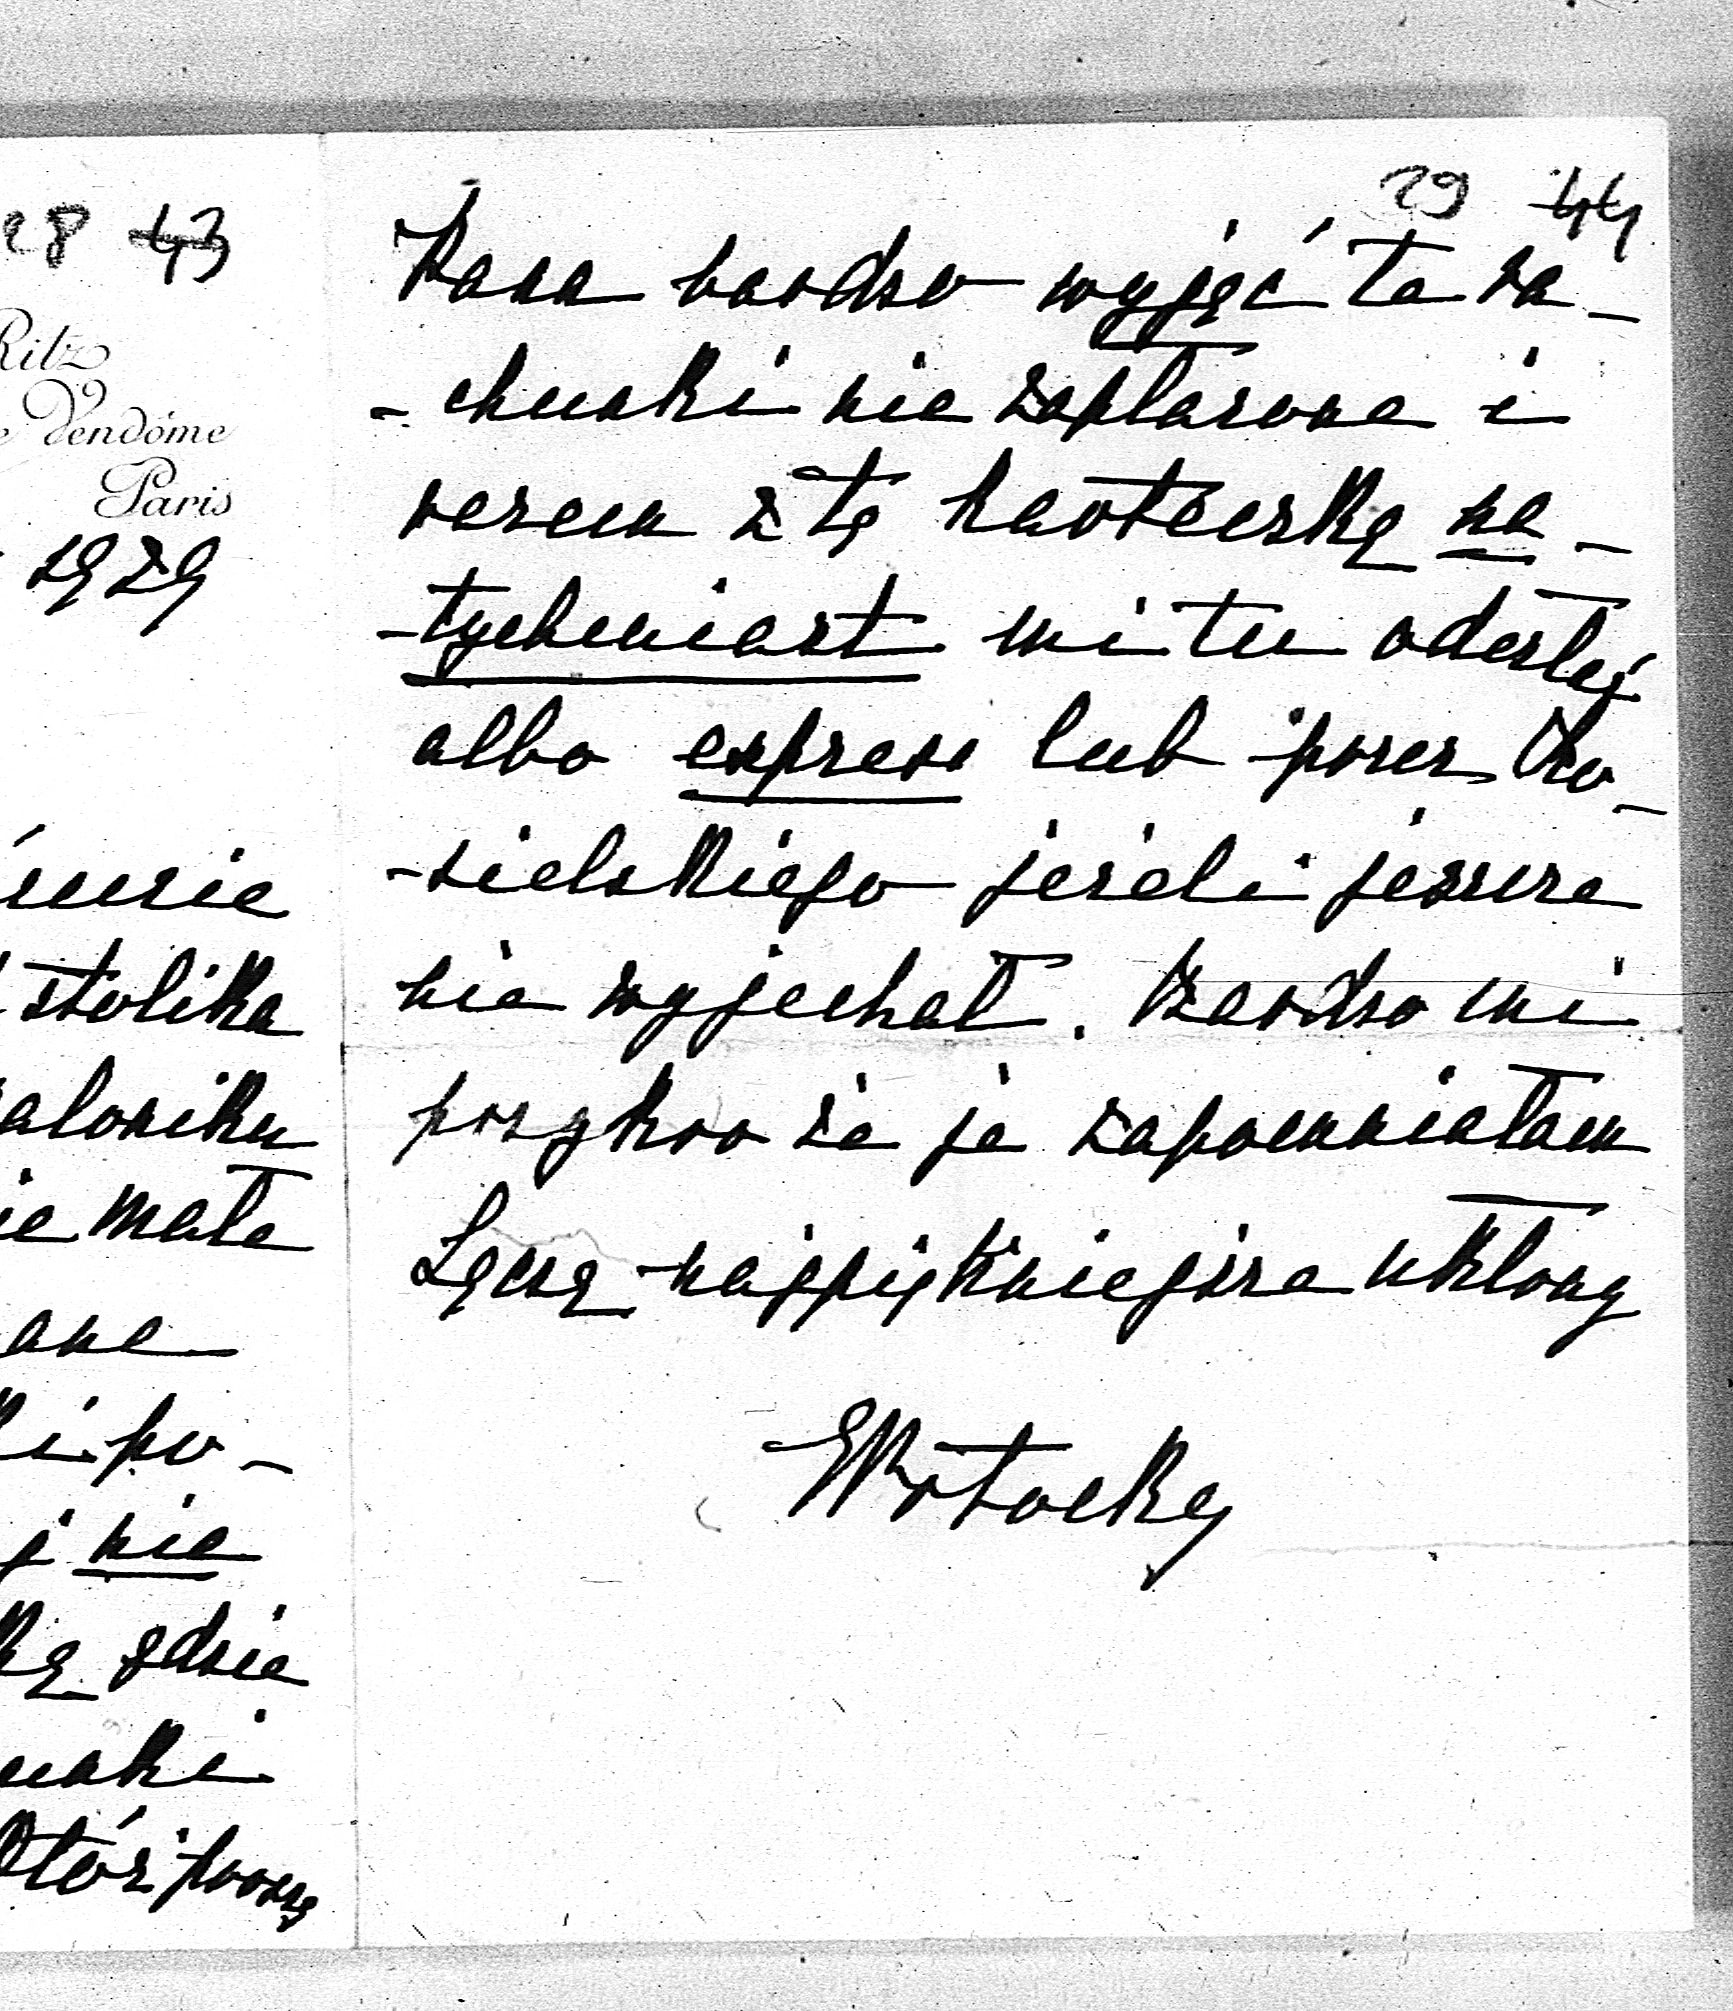 28 43
Ritz
Vendôme
Paris
1929
stolika
saloniku
małe
ane
i po-
nie
gdzie
Otóż proszę
29 44
Pana bardzo wyjąć te ra-
-chunki nie zapłacone i
razem z tą karteczką na-
-tychmiast mi tu odesłać
albo express lub przez Ko-
-zielskiego jeżeli jeszcze
nie wyjechał. Bardzo mi
przykro że ja zapomniałam
Łączę najpiękniejsze ukłony
EPotocka